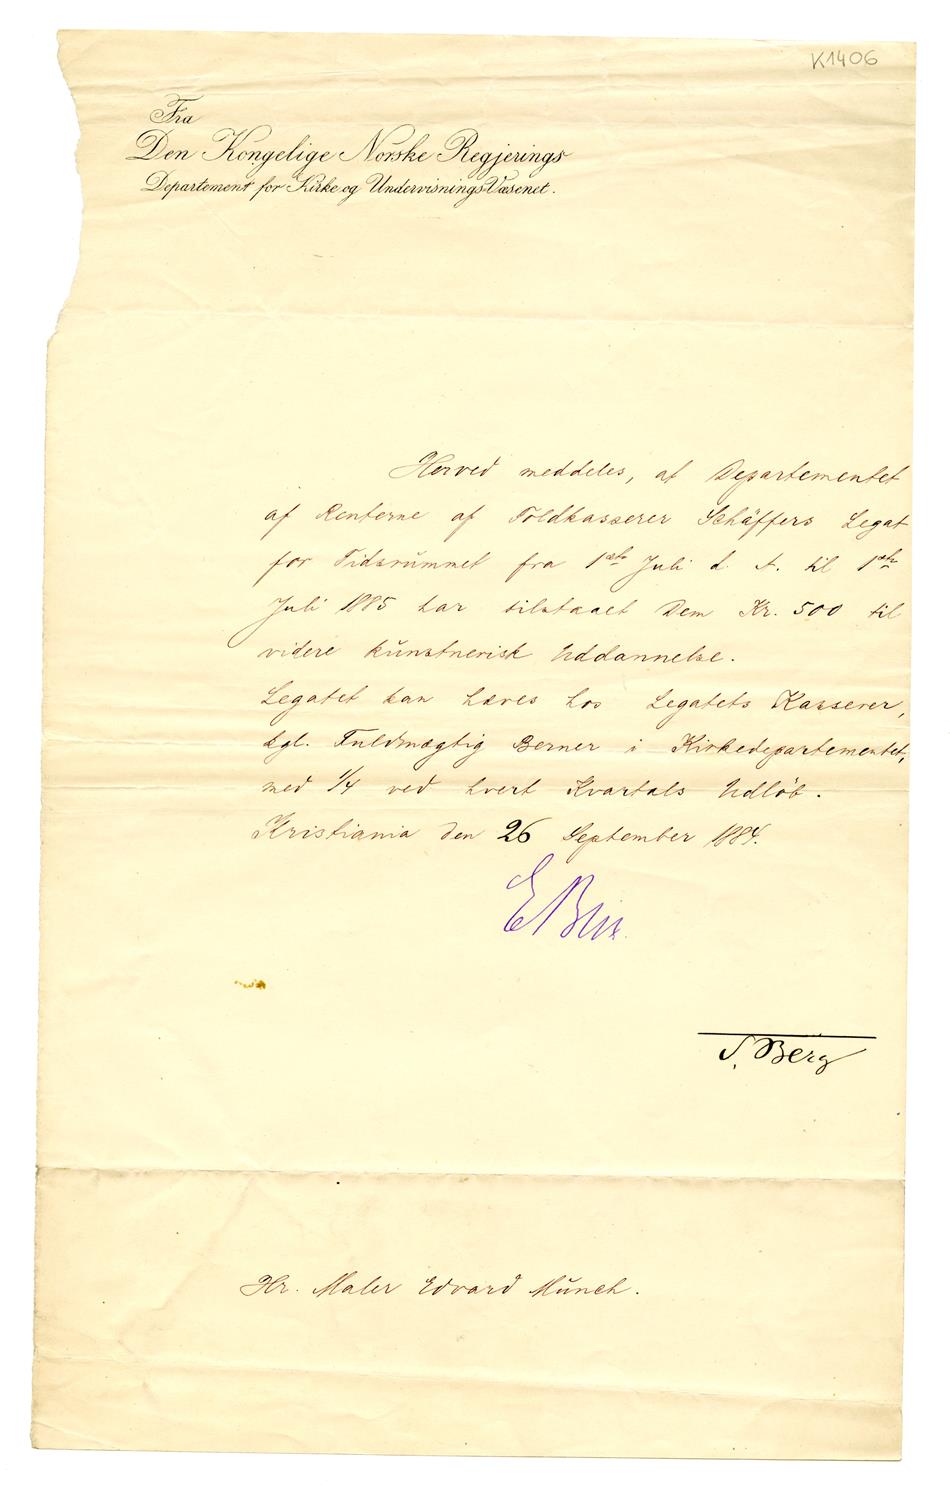 K1406
Fra
Den Kongelige Norske Regjerings
Departement for Kirke og Undervisnings-Væsenet.
Herved meddeles, at Departementet
af Renterne af Toldkasserer Schäffers Legat
for Tidsrummet fra 1ste Juli d. A. til 1ste
Juli 1885 har tilstaaet Dem Kr. 500 til
videre kunstnerisk Uddannelse.
Legatet kan hæves hos Legatets Kasserer,
kgl. Fuldmægtig Berner i Kirkedepartementet,
med 1/4 ved hvert Kvartals Udløb.
Kristiania den 26 September 1884.
E Blix
S. Berg
Hr. Maler Edvard Munch.